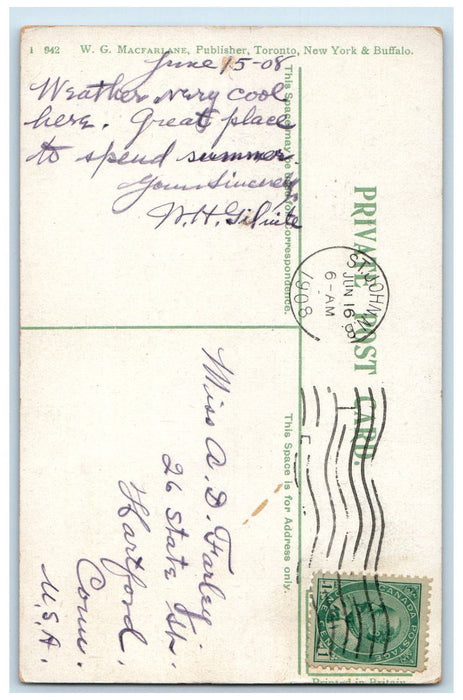 1 942 W. G. MACFARLANE, Publisher, Toronto, New York & Buffalo.
June 15-08
Weather very cool
here. Great place
to spend summer.
Yours Sincerely
This Space may be used for Correspondence.
PRIVATE POST CARD.
ST. JOHN N.B.
JUN 16
6-AM
1908
This Space is for Address only.
Miss A. D. Farley
26 State St.
Hartford,
Conn.
U.S.A.
CANADA POSTAGE
1 1
Printed in Britain